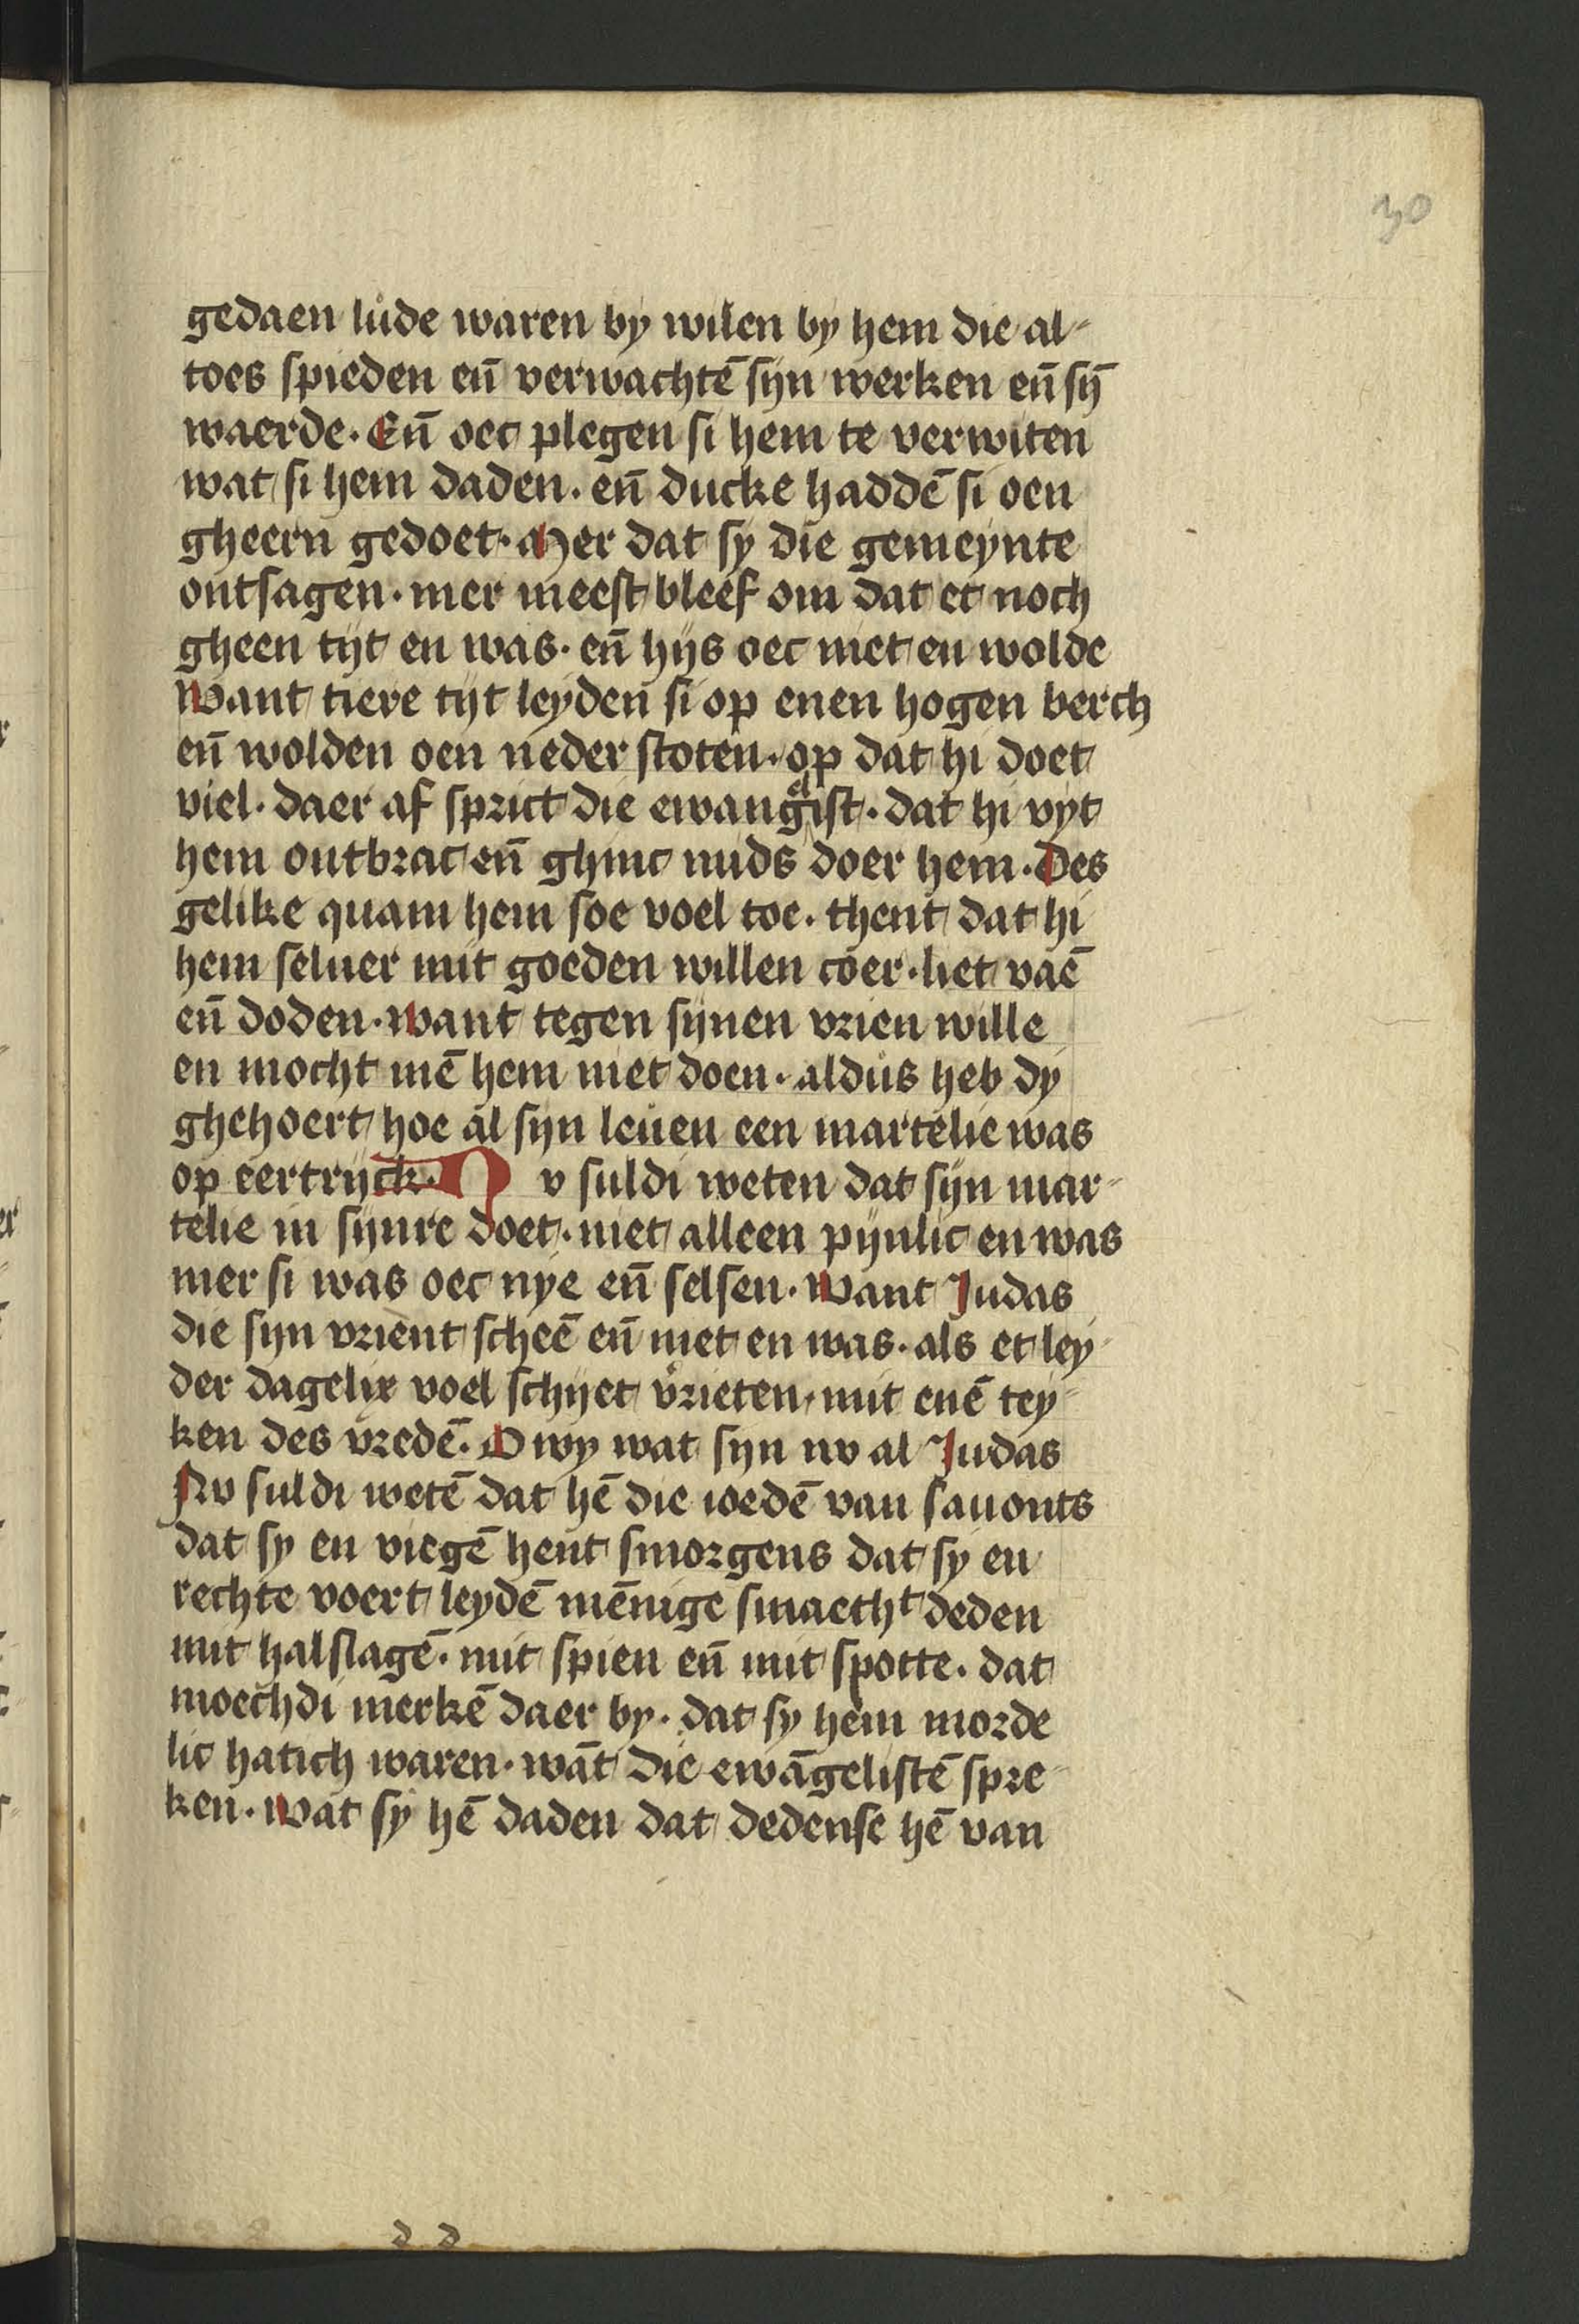 30
gedaen lude waren by wilen by hem die al-
toes spieden en̄ verwachtē syn werken en̄ sȳ
waerde. En̄ oec plegen si hem te verwiten
wat si hem daden. en̄ ducke haddē si oen
gheern gedoet. Mer dat sy die gemeynte
ontsagen. mer meest bleef om dat et noch
gheen tyt en was. en̄ hys oec niet en wolde
Want tiere tyt leyden si op enen hogen berch
en̄ wolden oen neder stoten. op dat hi doet
viel. daer af sprict die ewangelist. dat hi vyt
hem ontbrac en̄ ghinc mids doer hem. Des
gelike quam hem soe voel toe. thent dat hi
hem seluer mit goeden willen coer. liet vaē
en̄ doden. want tegen synen vrien wille
en mocht mē hem niet doen. aldus heb dy
ghehoert hoe al syn leuen een martelie was
op eertryck. Nv suldi weten dat syn mar-
telie in synre doet. niet alleen pynlic en was
mer si was oec nye en̄ selsen. Want Judas
die syn vrient scheē en̄ niet en was. als et ley-
der dagelix voel schyet v̊rieten. mit enē tey-
ken des vredē. O wy wat syn nv al Judas
Nv suldi wetē dat hē die ioedē van sauonts
dat sy en viegē hent smorgens dat sy en
rechte voert leydē mēnige smaetht deden
mit halslagē. mit spien en̄ mit spotte. dat
moechdi merkē daer by. dat sy hem morde
lic hatich waren. wāt die ewāgelistē spre-
ken. Wat sy hē daden dat dedense hē van
d d